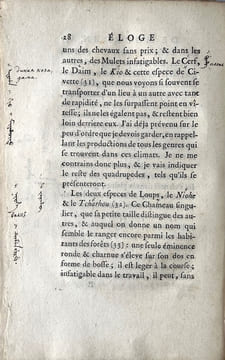 28 ÉLOGE
uns des chevaux sans prix; & dans les
autres, des Mulets infatigables. Le Cerf,
le Daim, le Kio & cette espece de Ci-
vette (31), que nous voyons si souvent se
transporter d'un lieu à un autre avec tant
de rapidité, ne les surpassent point en vî-
tesse; ils ne les égalent pas, & restent bien
loin derriere eux. J'ai déjà prévenu sur le
peu d'ordre que je devois garder, en rappel-
lant les productions de tous les genres qui
se trouvent dans ces climats. Je ne me
contrains donc plus, & je vais indiquer
le reste des quadrupedes, tels qu'ils se
présenteront.
Les deux especes de Loups, le Niohe
& le Tcharhou (32). Ce Chameau singu-
lier, que sa petite taille distingue des au-
tres, & auquel on donne un nom qui
semble le ranger encore parmi les habi-
tants des forêts (33): une seule éminence
ronde & charnue s'éleve sur son dos en
forme de bosse; il est leger à la course;
infatigable dans le travail, il peut, sans